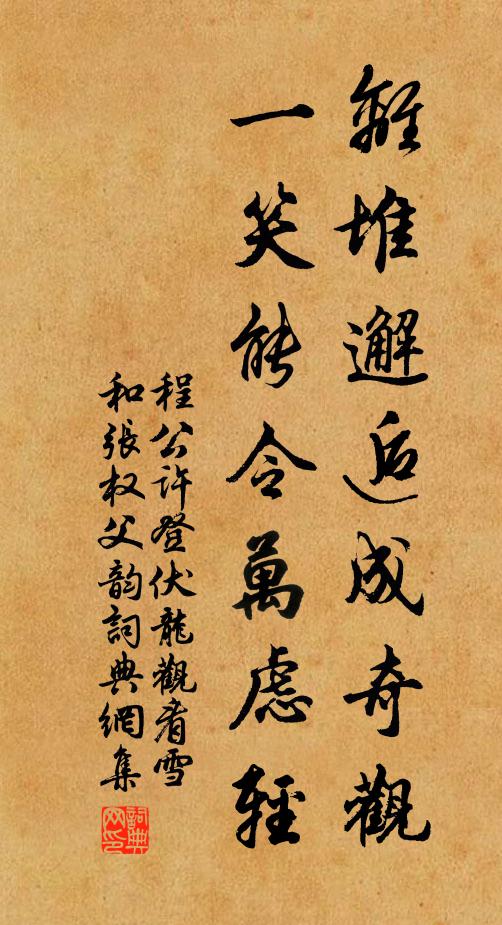 離堆邂逅成奇觀
一笑能令萬慮輕
程公許登伏龍觀看雪
和張权父韵詞典網集
詞典網印